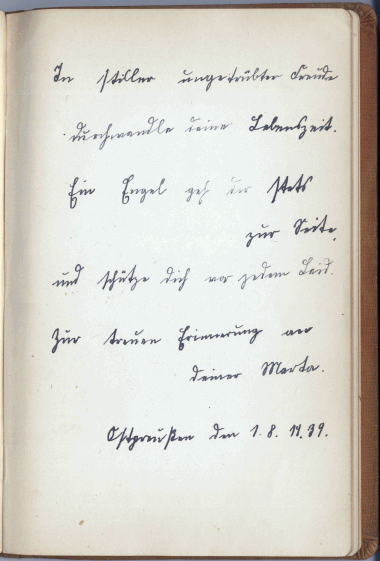 In stiller ungetrübter Freude
durchwandle deine Lebenszeit.
Ein Engel geh dir stets
zur Seite,
und schütze dich vor jedem Leid.
Zur treuen Erinnerung an
deiner Marta.
Ostpreußen den 1.8.1939.